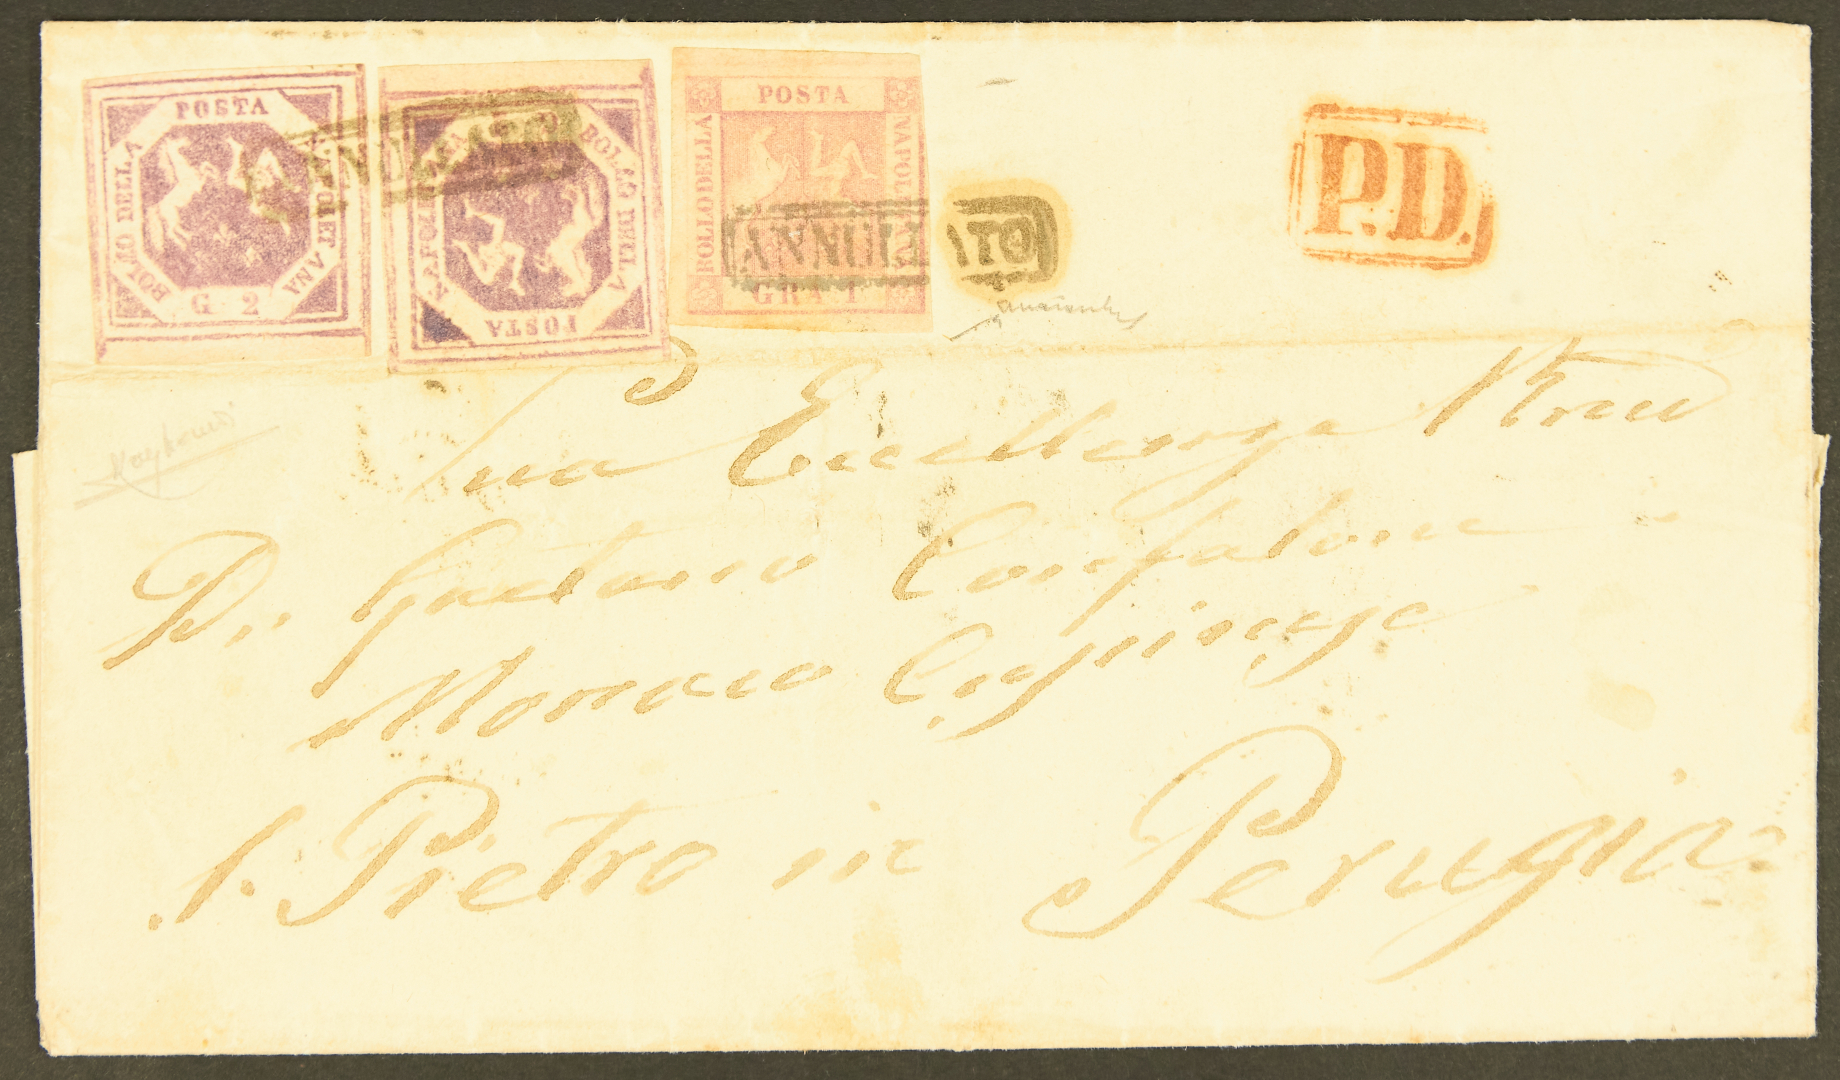 POSTA
BOLLO DELLA
NAPOLETANA
G. 2
POSTA
BOLLO DELLA
NAPOLETANA
ANNULLATO
POSTA
BOLLO DELLA
NAPOLETANA
GRA 1
ANNULLATO
P.D.
Sua Eccellenza
Dn Gaetano Confalone
Monaco Cassinese
S. Pietro in Perugia